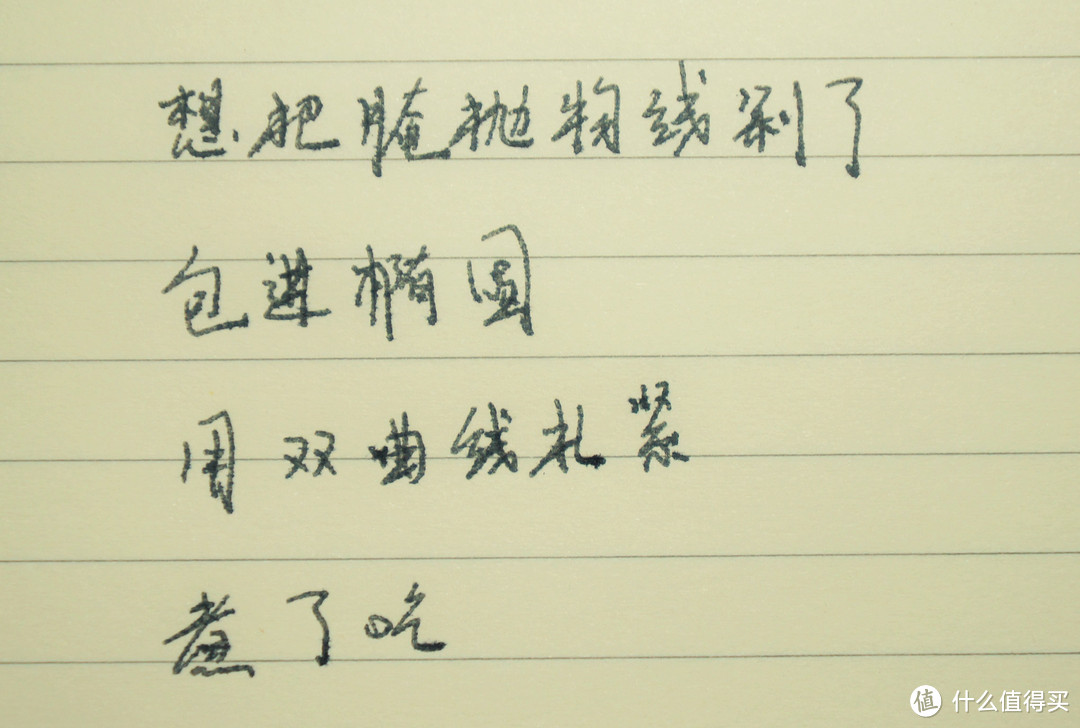 想把腌抛物线剁了
包进椭圆
用双曲线扎紧
煮了吃
值 什么值得买